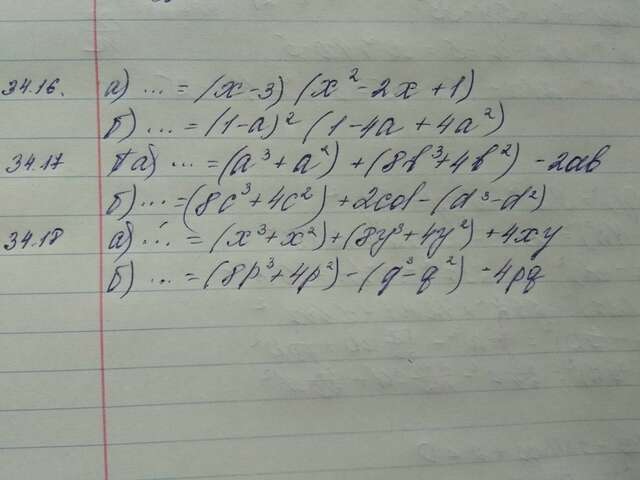 34.16. а) ... = (x-3) (x²-2x+1)
б) ... = (1-a)² (1-4a+4a²)
34.17 а) ... = (a³+a²) + (8b³+4b²) - 2ab
б) ... = (8c³+4c²) + 2cd - (d³-d²)
34.18 а) ... = (x³+x²)+(8y³+4y²)+4xy
б) ... = (8p³+4p²) - (q³-q²) - 4pq